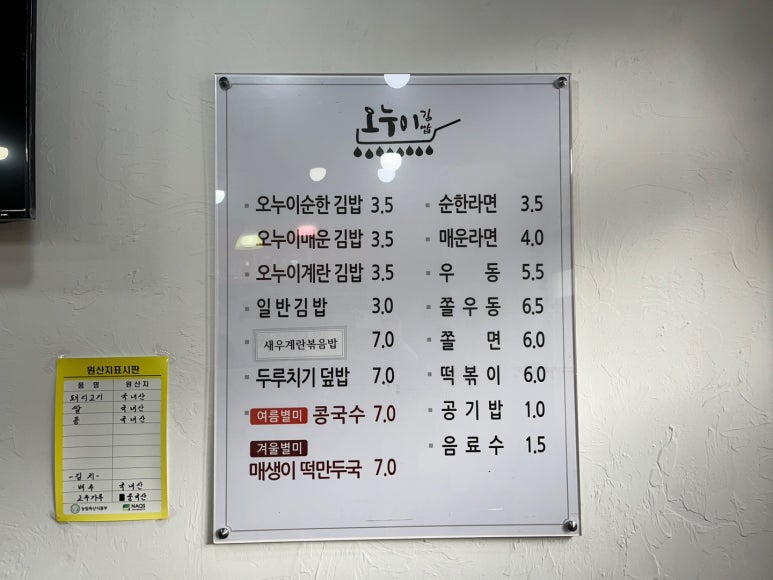 오누이김밥
오누이순한 김밥 3.5
오누이매운 김밥 3.5
오누이계란 김밥 3.5
일반김밥 3.0
새우계란볶음밥 7.0
두루치기 덮밥 7.0
여름별미 콩국수 7.0
겨울별미
매생이 떡만두국 7.0
순한라면 3.5
매운라면 4.0
우동 5.5
쫄우동 6.5
쫄면 6.0
떡볶이 6.0
공기밥 1.0
음료수 1.5
원산지표시판
품명 원산지
돼지고기 국내산
쌀 국내산
콩 국내산
-김치-
배추 국내산
고추가루 중국산
농림축산식품부 NAQS